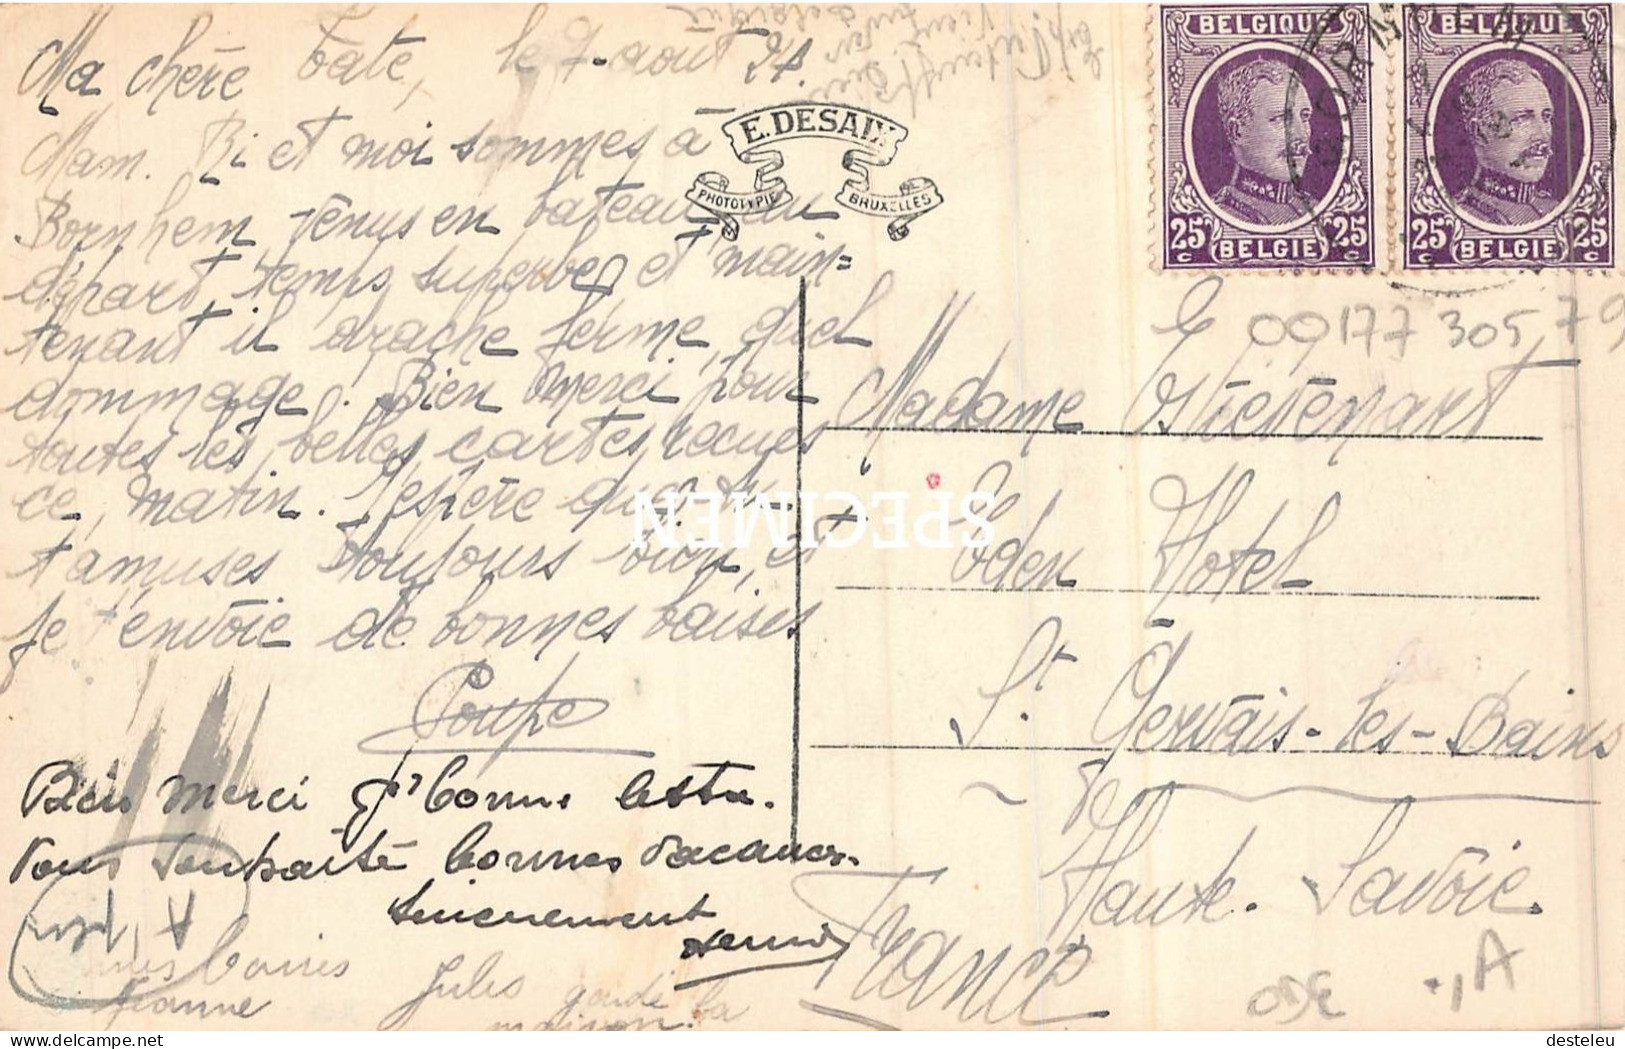 Ma chère Tate, le 7 août 24.
Mam. Bi et moi sommes à
Bornhem, venus en bateau au
départ, temps superbe et main=
tenant il drache ferme, quel
dommage. Bien merci pour
toutes les belles cartes reçues
ce matin. J'espère que tu
t'amuses toujours bien, et
je t'envoie de bonnes baises
Poupe
Bien merci pr bonne
Vous souhaite bonnes vacances.
Sincèrement
bonnes baises
Jeanne
Jules garde la
maison.
E. DESAIX
PHOTOTYPIE BRUXELLES
BELGIQUE
25c BELGIE 25c
BELGIQUE
25c BELGIE 25c
BORNHEM
00177 305 79
Madame
Eden Hotel
St Gervais-les-Bains
Haute-Savoie
France
SPECIMEN
desteleu